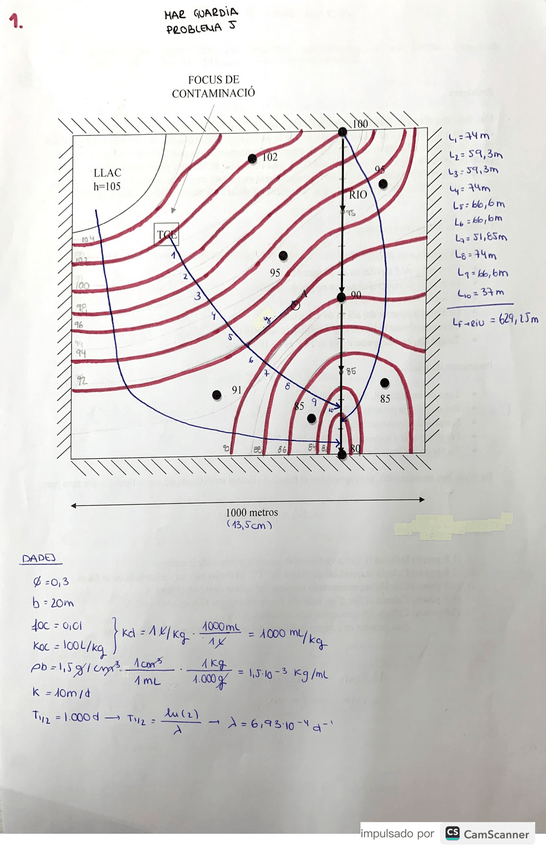 1.
MAR GUARDIA
PROBLEMA 5
FOCUS DE
CONTAMINACIÓ
100
102
LLAC
h=105
95
RIO
TCE
95
104
102
100
98
96
94
92
95
A
90
1
2
3
4
5
6
7
8
9
91
85
85
85
90
88
86
84
80
L₁=74m
L₂=59,3m
L₃=59,3m
L₄=74m
L₅=66,6m
L₆=66,6m
L₇=51,85m
L₈=74m
L₉=66,6m
L₁₀=37m
LF→RIU = 629,25m
1000 metros
(13,5cm)
DADES
Ø=0,3
b=20m
foc=0,01
Koc=100L/kg } Kd = 1 L/kg · 1000mL/1L = 1000 mL/kg
ρb=1,5g/cm³ · 1cm³/1mL · 1Kg/1.000g = 1,5·10⁻³ Kg/mL
K=10m/d
T1/2=1.000d → T1/2 = ln(2)/λ → λ=6,93·10⁻⁴ d⁻¹
impulsado por CS CamScanner